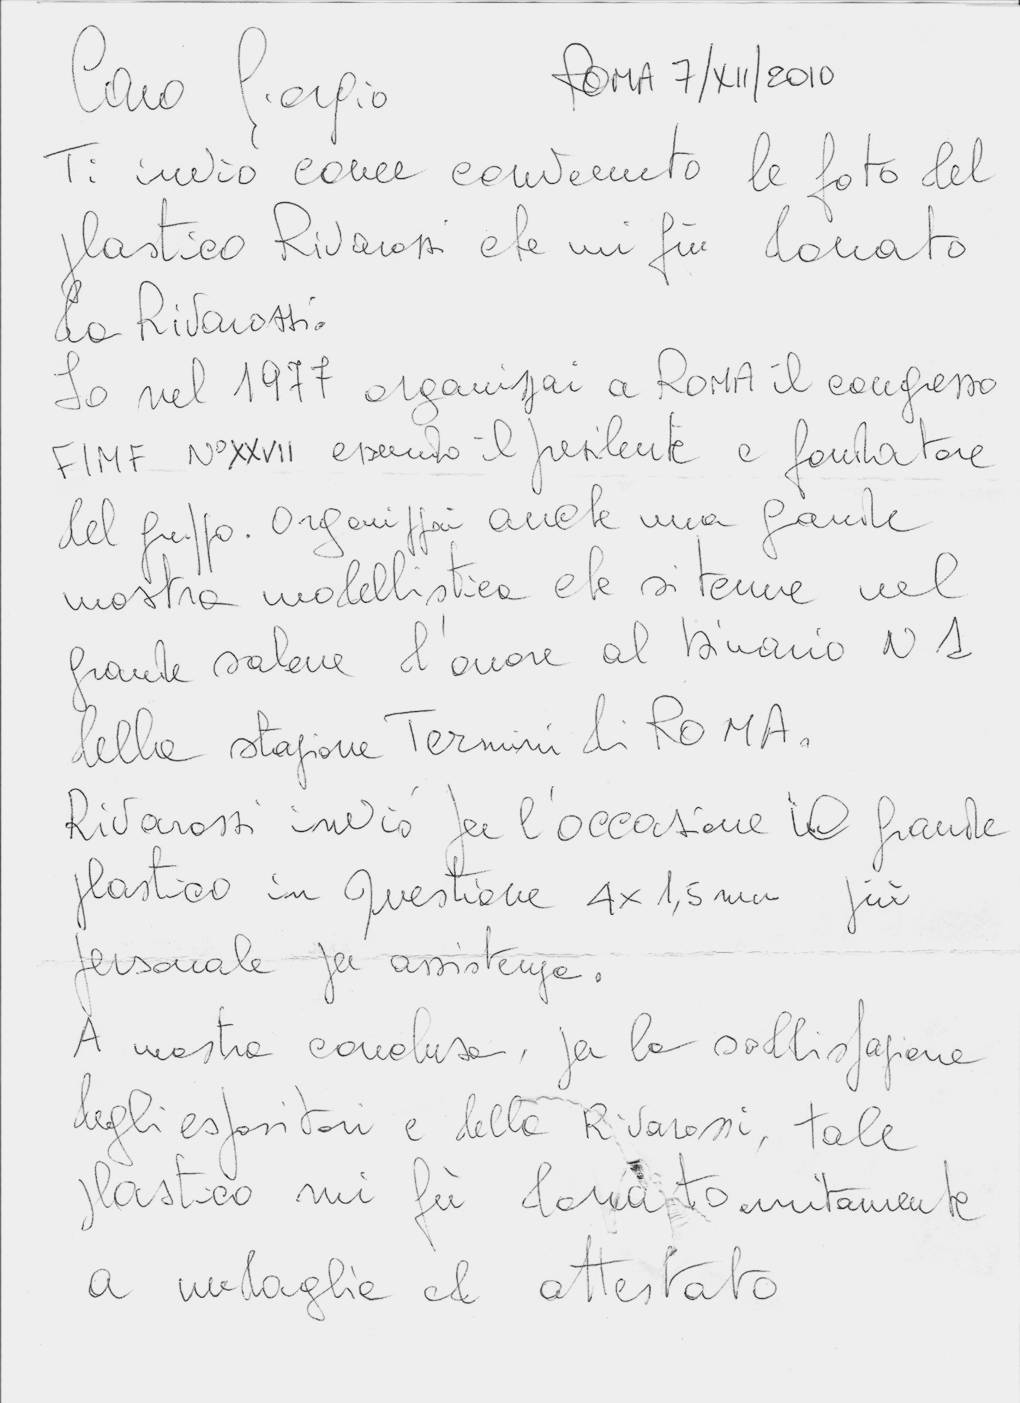 Caro Giorgio ROMA 7/XII/2010
Ti inviò come convenuto le foto del
plastico Rivarossi che mi fù donato
da Rivarossi.
Io nel 1977 organizzai a ROMA il congresso
FIMF N° XXVII essendo il presidente e fondatore
del gruppo. Organizzai anche una grande
mostra modellistica che si tenne nel
grande salone d'onore al binario N 1
della stazione Termini di ROMA.
Rivarossi inviò per l'occasione il grande
plastico in questione 4x1,5 m più
personale per assistenza.
A mostra conclusa, per la soddisfazione
degli espositori e della Rivarossi, tale
plastico mi fù donato unitamente
a medaglia ed attestato